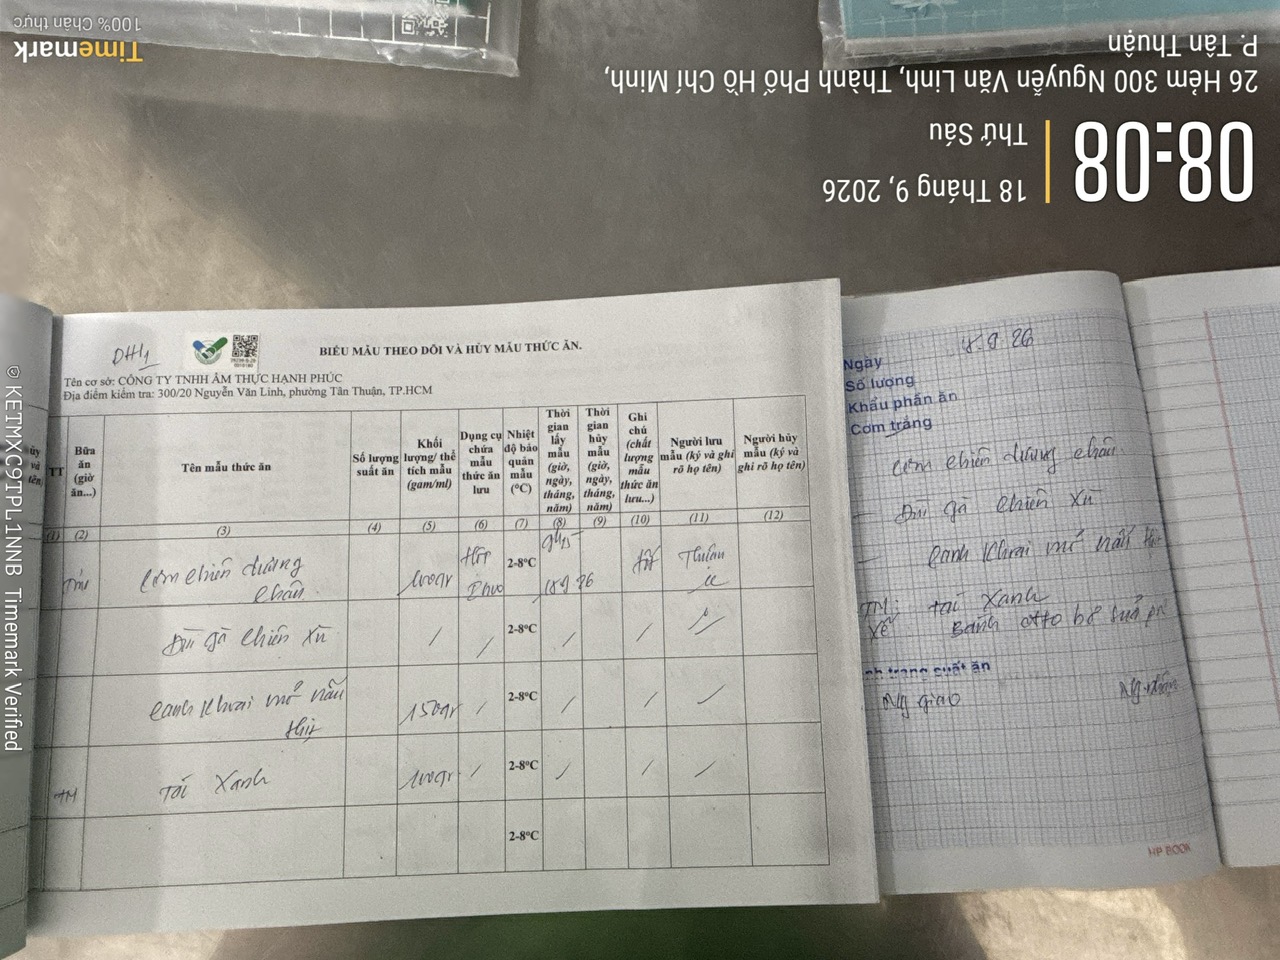 100% Chân thực
Timemark
P. Tân Thuận
26 Hẻm 300 Nguyễn Văn Linh, Thành Phố Hồ Chí Minh,
08:08
Thứ Sáu
18 Tháng 9, 2026
© KETMXC9TPL1NNB Timemark Verified
ĐHL1
BIỂU MẪU THEO DÕI VÀ HỦY MẪU THỨC ĂN.
Tên cơ sở: CÔNG TY TNHH ẨM THỰC HẠNH PHÚC
Địa điểm kiểm tra: 300/20 Nguyễn Văn Linh, phường Tân Thuận, TP.HCM
TT Bữa ăn (giờ ăn...) Tên mẫu thức ăn Số lượng suất ăn Khối lượng/ thể tích mẫu (gam/ml) Dụng cụ chứa mẫu thức ăn lưu Nhiệt độ bảo quản mẫu (°C) Thời gian lấy mẫu (giờ, ngày, tháng, năm) Thời gian hủy mẫu (giờ, ngày, tháng, năm) Ghi chú (chất lượng mẫu thức ăn lưu...) Người lưu mẫu (ký và ghi rõ họ tên) Người hủy mẫu (ký và ghi rõ họ tên)
(1) (2) (3) (4) (5) (6) (7) (8) (9) (10) (11) (12)
Cơm chiên dương châu 100gr Hộp 2-8°C 18 9 26 Thuận
Đùi gà chiên xù / / 2-8°C / /
Canh khoai mỡ nấu thịt 150gr / 2-8°C / / /
TM Táo xanh 100gr / 2-8°C / / /
2-8°C
Ngày 18.9.26
Số lượng
Khẩu phần ăn
Cơm trắng
Cơm chiên dương châu
- Đùi gà chiên xù
- Canh khoai mỡ nấu
TM: táo xanh
Xế Bánh otto bơ sữa
suất ăn
Ng giao
HP BOOK